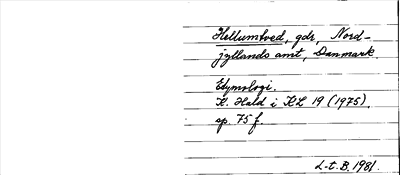 Hellumtved, gdr, Nord-
jyllands amt, Danmark.
Etymologi.
K. Hald i KL 19 (1975),
sp. 75 f.
L-t. B. 1981.